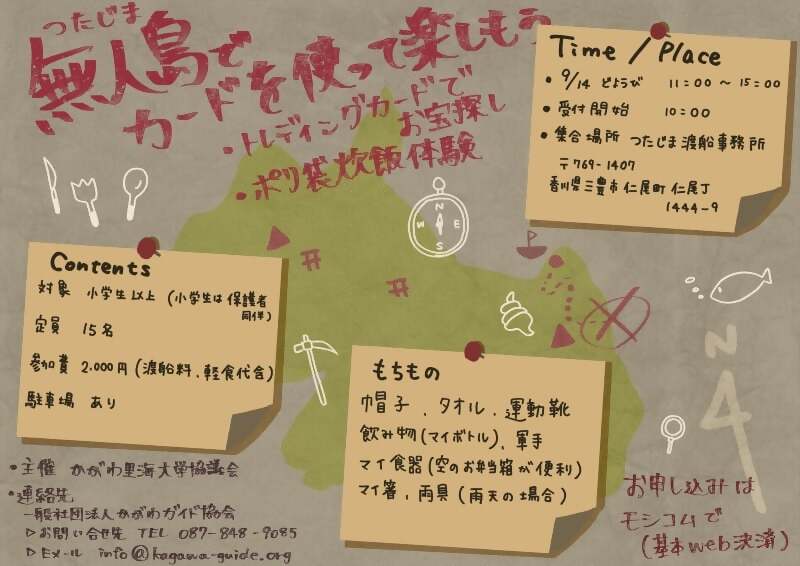 つたじま
無人島で
カードを使って楽しもう
・トレディングカードで
お宝探し
・ポリ袋炊飯体験
Time / Place
・9/14 どようび 11:00 ～ 15:00
・受付開始 10:00
・集合場所 つたじま渡船事務所
〒769-1407
香川県三豊市仁尾町仁尾丁
1444-9
N
W E
S
Contents
対象 小学生以上 (小学生は保護者
同伴)
定員 15名
参加費 2.000円 (渡船料、軽食代含)
駐車場 あり
もちもの
帽子、タオル、運動靴
飲み物(マイボトル)、軍手
マイ食器(空のお弁当箱が便利)
マイ箸、雨具(雨天の場合)
N
・主催 かがわ里海大学協議会
・連絡先
一般社団法人かがわガイド協会
▷お問い合せ先 TEL 087-848-9085
▷Eメール info@kagawa-guide.org
お申し込みは
モシコムで
(基本web決済)